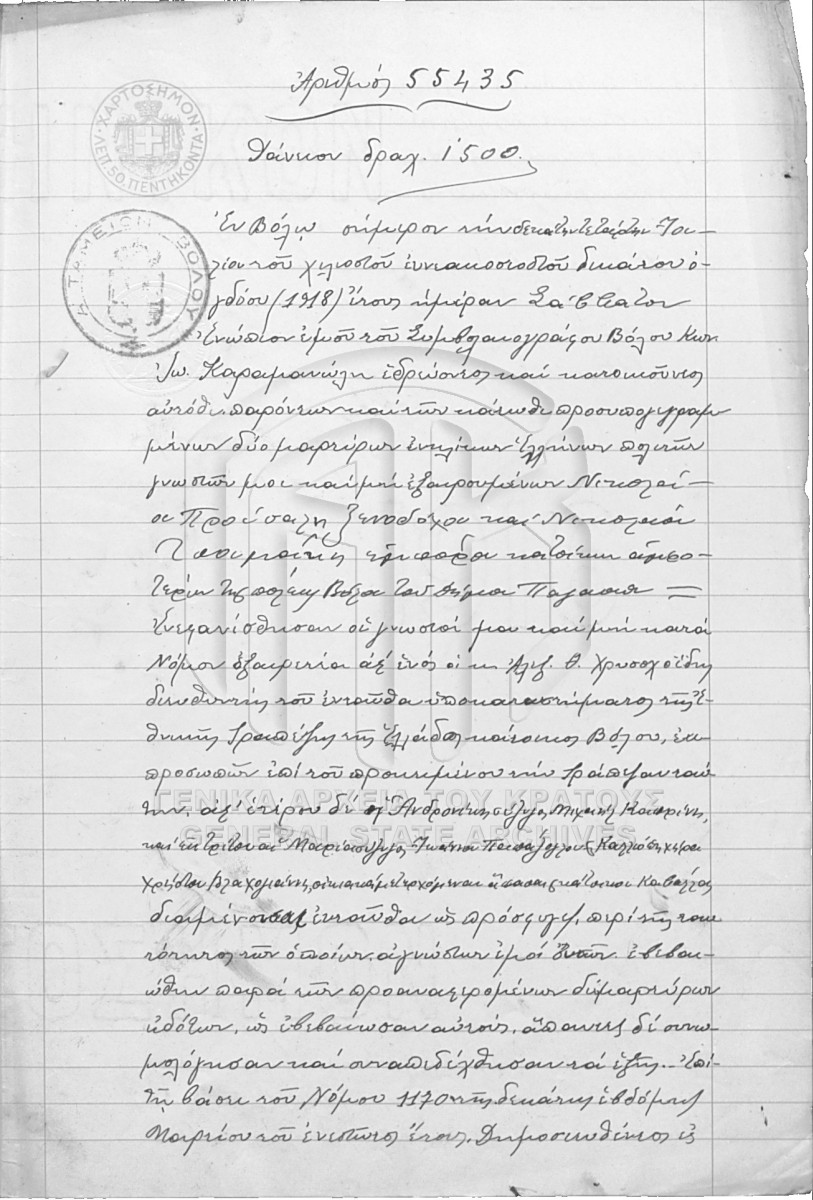 Ἀριθμός 55435
Δάνειον δραχ. 1500.
ΧΑΡΤΟΣΗΜΟΝ
ΛΕΠ. 50. ΠΕΝΤΗΚΟΝΤΑ
ΤΑΜΕΙΟΝ ΒΟΛΟΥ
Ἐν Βόλῳ σήμερον τήν δεκάτην τετάρτην Ἰου-
λίου τοῦ χιλιοστοῦ ἐννεακοσιοστοῦ δεκάτου ὀ-
γδόου (1918) ἔτους ἡμέραν Σάββατον
Ἐνώπιον ἐμοῦ τοῦ Συμβολαιογράφου Βόλου Κων
Ἰω. Καραμανώλη ἑδρεύοντος καί κατοικοῦντος
αὐτόθι παρόντων καί τῶν κάτωθι προσυπογεγραμ
μένων δύο μαρτύρων ἐνηλίκων Ἑλλήνων πολιτῶν
γνωστῶν μοι καί μή ἐξαιρουμένων Νικολά-
ου ξενοδόχου καί Νικολάου
ἐμπόρου κατοίκων ἀμφο-
τέρων τῆς πόλεως Βόλου τοῦ δήμου Παγασῶν
Ἐνεφανίσθησαν οἱ γνωστοί μου καί μή κατά
Νόμον ἐξαιρετέοι ἀφ' ἑνός ὁ κ. Ἀλεξ. Θ. Χρυσοχοΐδης
διευθυντής τοῦ ἐνταῦθα ὑποκαταστήματος τῆς Ἐ-
θνικῆς Τραπέζης τῆς Ἑλλάδος κάτοικος Βόλου, ἐκ
προσωπῶν ἐπί τοῦ προκειμένου τήν Τράπεζαν ταύ
την, ἀφ' ἑτέρου δέ ἡ Ἀνδρονίκη σύζυγος Μιχαήλ
καί ἐκ τρίτου αἱ Μαρία σύζυγος Ἰωάννου Καλλιόπη χήρα
Χρήστου ἅπασαι κάτοικοι Καβάλλας
διαμένουσαι ἐνταῦθα ὡς πρόσφυγες, περί τῆς ταυ
τότητος τῶν ὁποίων, ἀγνώστων ἐμοί ἐβεβαι-
ώθην παρά τῶν προαναφερομένων δύο μαρτύρων
εἰδότων, ὡς ἐβεβαίωσαν αὐτούς, ἅπαντες δέ συνω
μολόγησαν καί συναπεδέχθησαν τά ἑξῆς. Ἐπί
τῇ βάσει τοῦ Νόμου 1170 τῆς δεκάτης ἑβδόμης
Μαρτίου τοῦ ἐνεστῶτος ἔτους, δημοσιευθέντος εἰς
ΓΕΝΙΚΑ ΑΡΧΕΙΑ ΤΟΥ ΚΡΑΤΟΥΣ
GENERAL STATE ARCHIVES